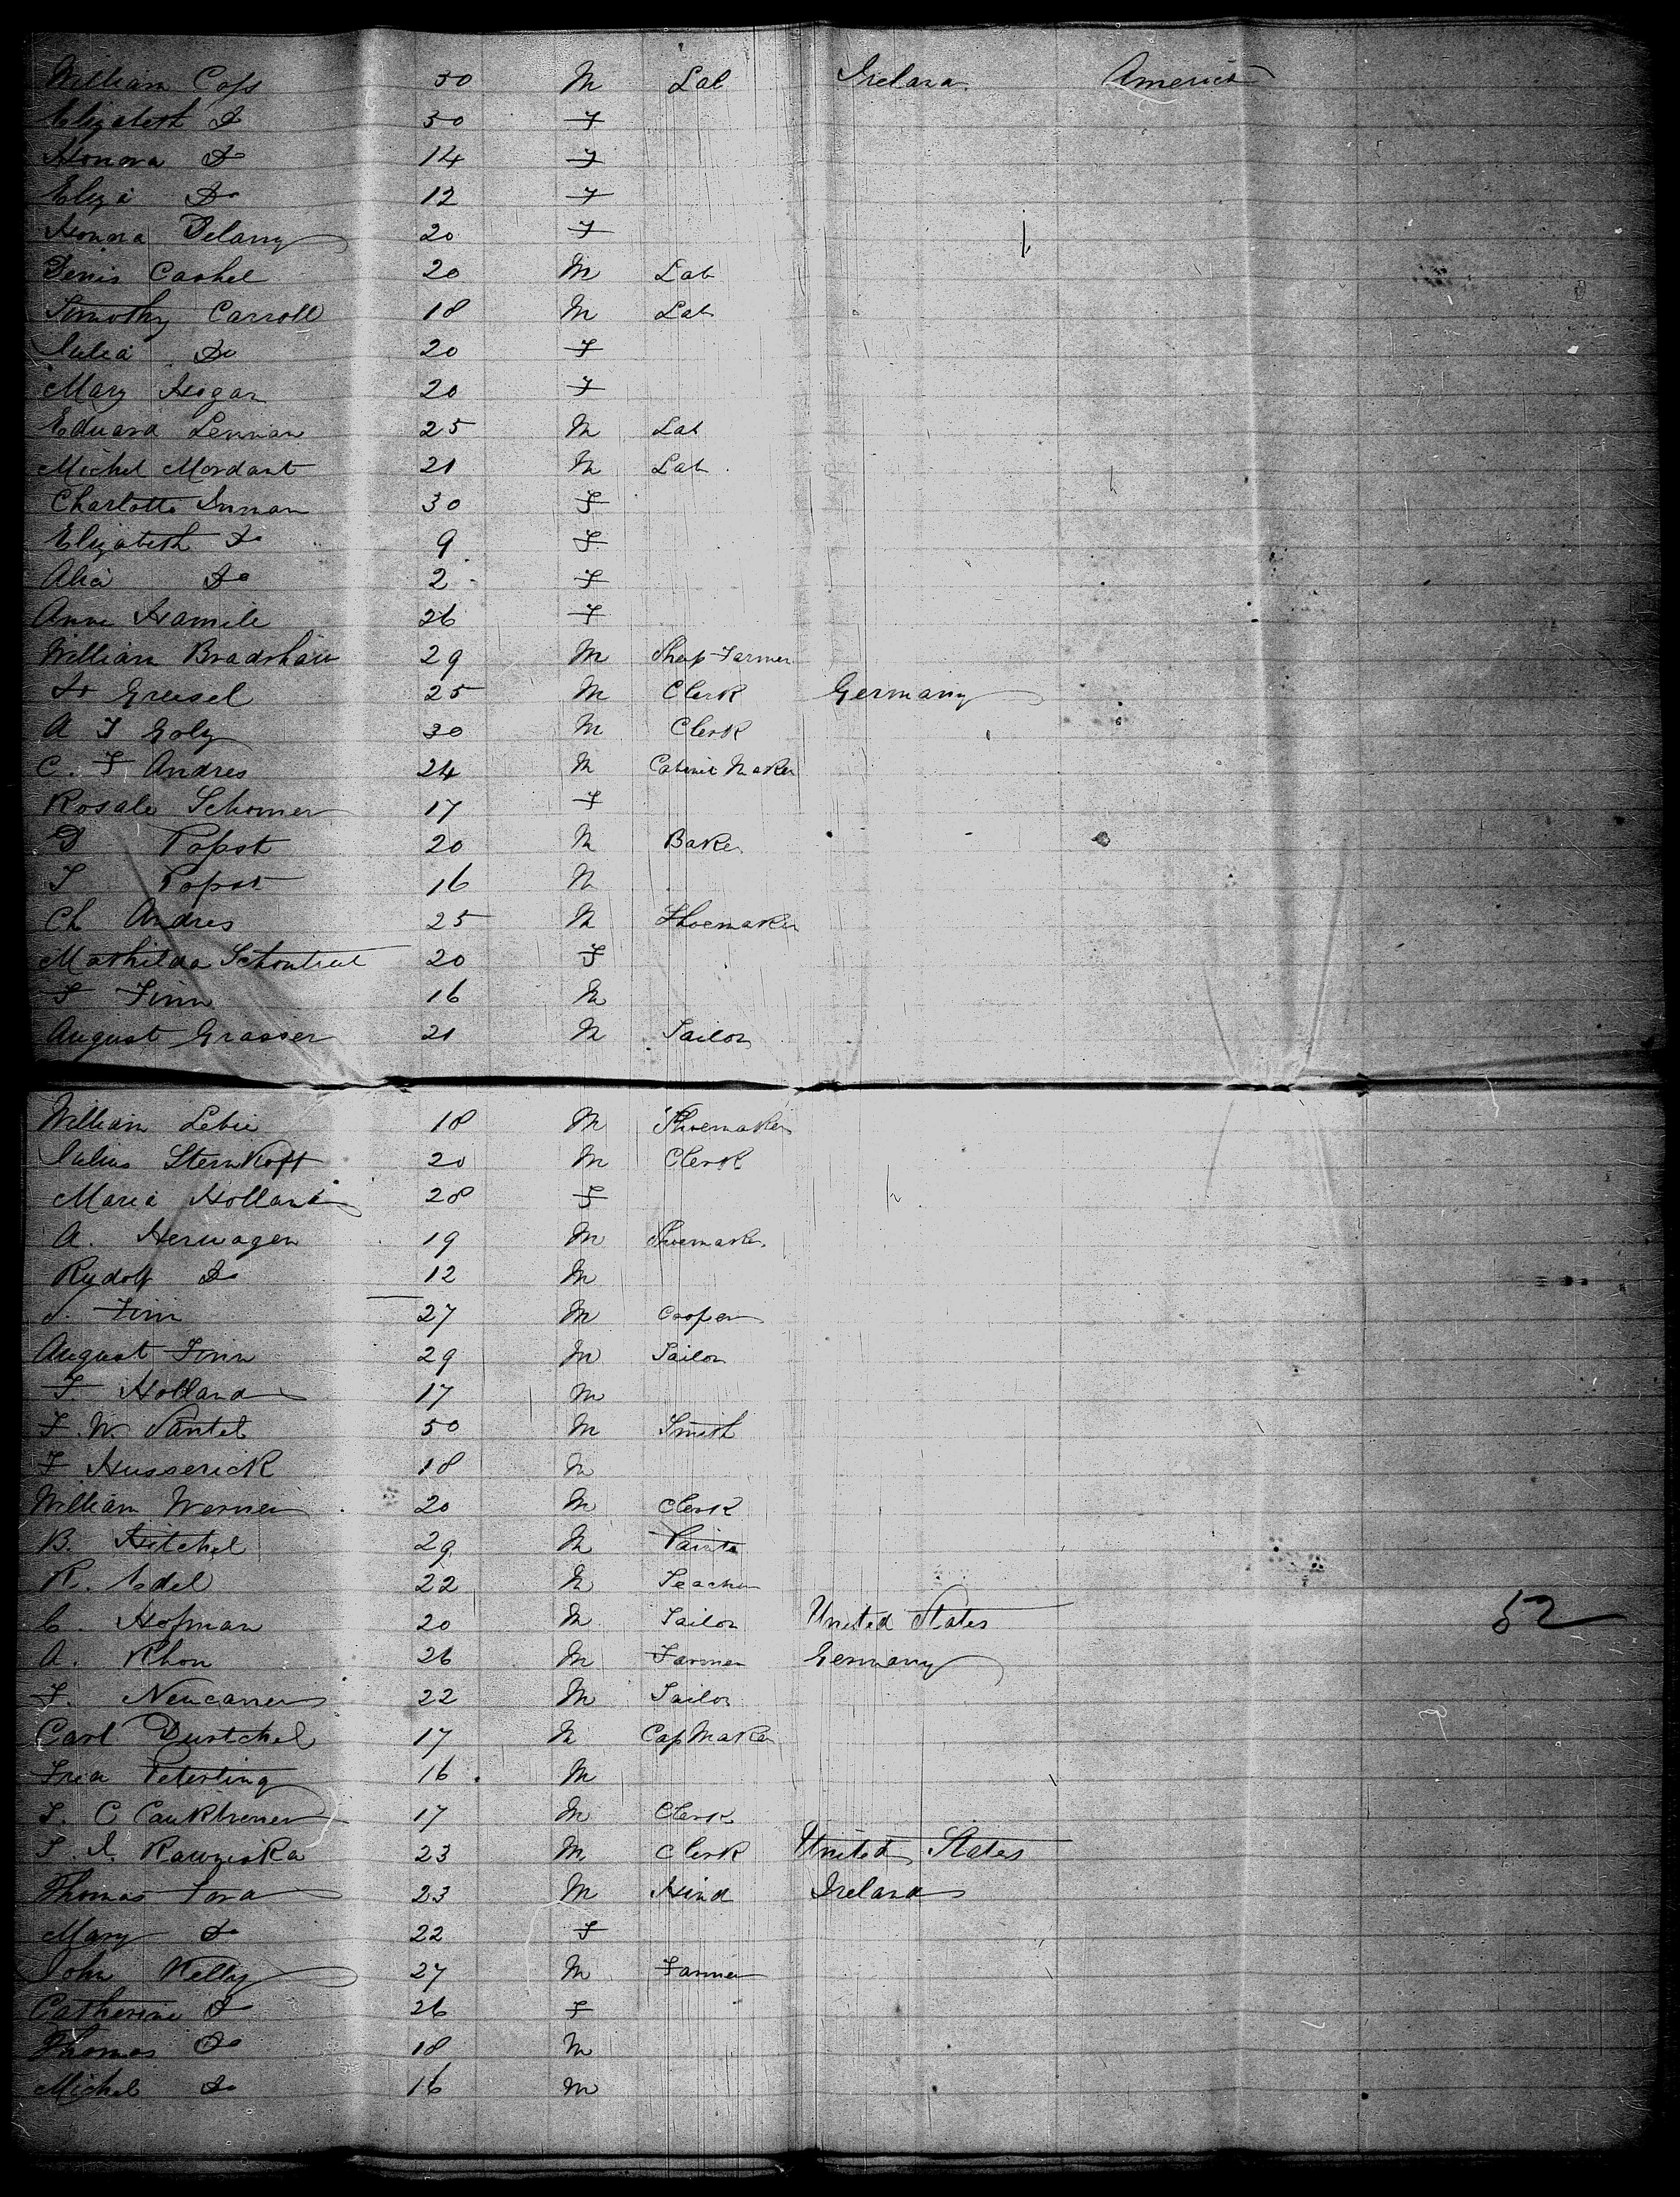 William Cops 50 M Lab Ireland America
Elizabeth Do 50 F
Honora Do 14 F
Eliza Do 12 F
Honora Delany 20 F
Denis Cashel 20 M Lab
Timothy Carroll 18 M Lab
Julia Do 20 F
Mary Hogan 20 F
Edward Lennan 25 M Lab
Michel Mordant 21 M Lab
Charlotte Inman 30 F
Elizabeth Do 9 F
Alia Do 2 F
Anne Hamile 26 F
William Bradshaw 29 M Shep Farmer
H Greisel 25 M Clerk Germany
A F Goly 30 M Clerk
C. F Andres 24 M Cabinet Maker
Rosale Schomer 17 F
D Popst 20 M Baker
S Popst 16 M
Ch Andres 25 M Shoemaker
Mathilda 20 F
F Finn 16 M
August Grasser 21 M Tailor
William Lebie 18 M Shoemaker
Julius Sternkopf 20 M Clerk
Maria Holland 28 F
A. Herwagen 19 M Shoemaker
Rudolf Do 12 M
J. Finn 27 M Cooper
August Finn 29 M Tailor
F. Holland 17 M
F. W. Pantel 50 M Smith
F Husserick 18 M
William Werner 20 M Clerk
B. Hitchel 29 M Painter
R. Edel 22 M Teacher
C. Hofman 20 M Tailor United States 52
A. Khon 26 M Farmer Germany
F. 22 M Tailor
Carl Durtchel 17 M Cap Maker
Fred Peterling 16 M
F. C 17 M Clerk
F. I. Rawziska 23 M Clerk United States
Thomas Ford 23 M Hind Ireland
Mary Do 22 F
John Kelly 27 M Farmer
Catherine Do 26 F
Thomas Do 18 M
Michel Do 16 M